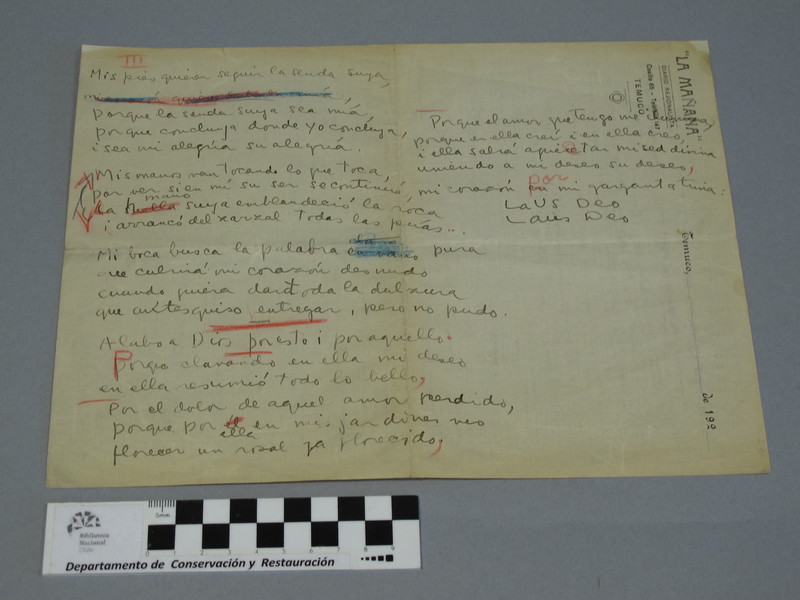 III
Mis pies quieren seguir la senda suya,
porque la senda suya sea mía,
porque concluya donde yo concluya,
i sea mi alegría su alegría.
Mis manos van tocando lo que toca,
por ver si en mí su ser se contenció,
la huella mano suya emblandeció la roca
i arrancó del zarzal todas las púas...
Mi boca busca la palabra pura
que cubrirá mi corazón desnudo
cuando quiera dar toda la dulzura
que antes quiso entregar, pero no pudo.
Alabo a Dios por esto i por aquello.
Porque clavando en ella mi deseo
en ella resumió todo lo bello,
Por el dolor de aquel amor perdido,
porque por ella en mis jardines veo
florecer un rosal ya florecido,
Porque el amor que tengo me
porque en ella creí i en ella creo,
i ella sabrá aquietar mi sed divina
uniendo a mi deseo su deseo,
mi corazón por en mi garganta trina:
LAUS DEO
Laus Deo
"LA MAÑANA"
DIARIO REGIONALISTA
Casilla 65 -
TEMUCO
Temuco,
de 192
5mm
0 1 2 3 4 5 6 7 8 9
Biblioteca
Nacional
Chile
Departamento de Conservación y Restauración